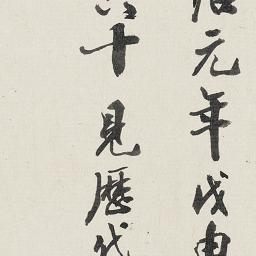 元年戊申
十見歷代